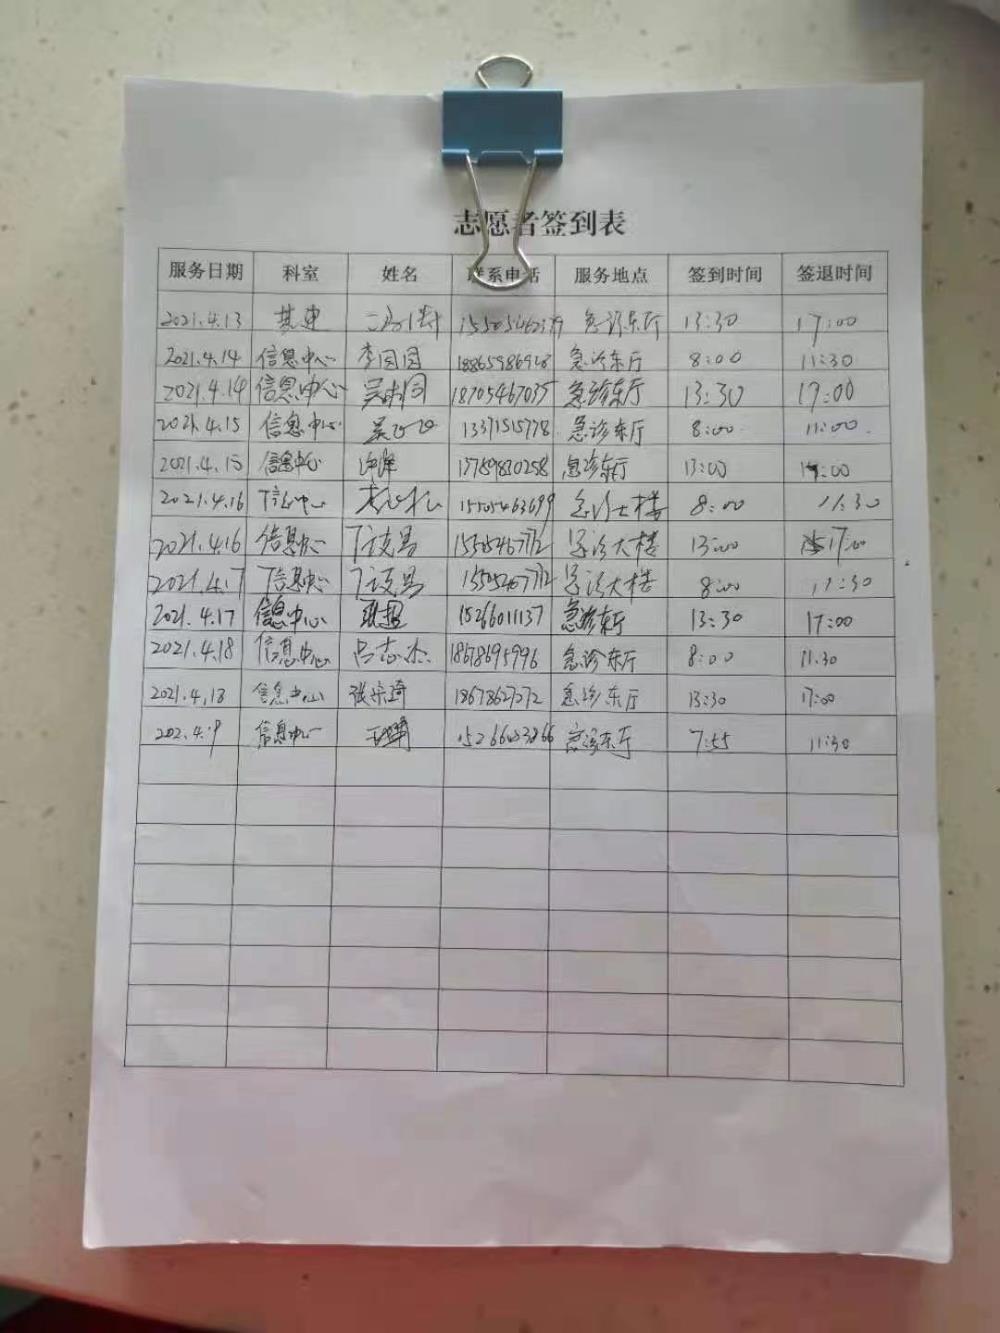 志愿者签到表
服务日期 科室 姓名 联系电话 服务地点 签到时间 签退时间
2021.4.13 基建 急诊东厅 13:30 17:00
2021.4.14 信息中心 李囡囡 急诊东厅 8:00 11:30
2021.4.14 信息中心 18705467035 急诊东厅 13:30 17:00
2021.4.15 信息中心 13371515778 急诊东厅 8:00 11:00
2021.4.15 信息中心 17789830258 急诊东厅 13:00
2021.4.16 信息中心 15505463699 急诊大楼 8:00 11:30
2021.4.16 信息中心 急诊大楼 13:00 17:00
2021.4.17 信息中心 急诊大楼 8:00 11:30
2021.4.17 信息中心 15266011137 急诊东厅 13:30 17:00
2021.4.18 信息中心 吕志杰 18678695996 急诊东厅 8:00 11:30
2021.4.18 信息中心 18678627272 急诊东厅 13:30 17:00
信息中心 急诊东厅 7:55 11:30